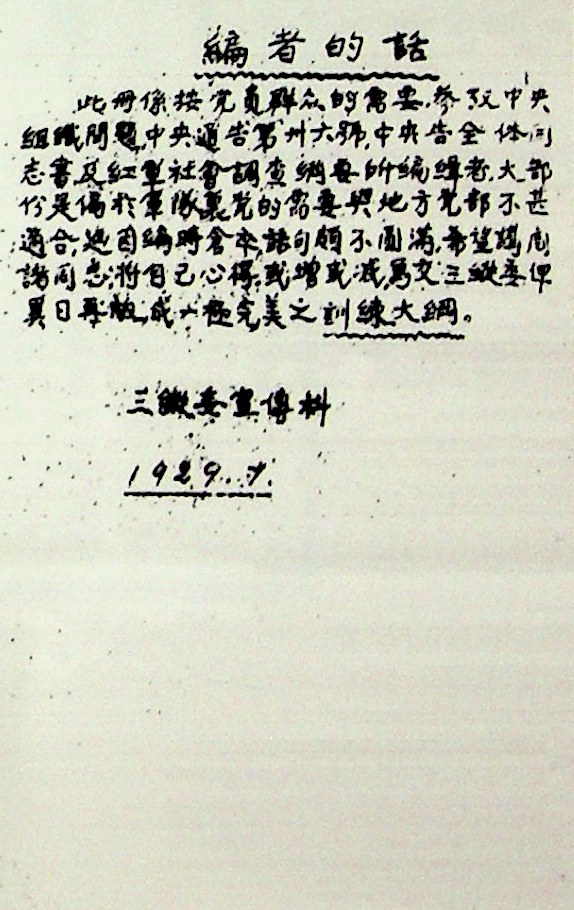 編者的話
此册係按党員群众的需要,参攷中央
組織問題,中央通告第卅六號,中央告全体同
志書及紅軍社會調查綱要所編緝者,大部
份是偏於軍隊裏党的需要與地方党部不甚
適合,迨因編時倉卒,語句頗不圓滿,希望
諸同志,將自己心得,或增或减,寫交三縱委俾
異日再版,成一極完美之訓練大綱。
三縱委宣傳科
1929..7.